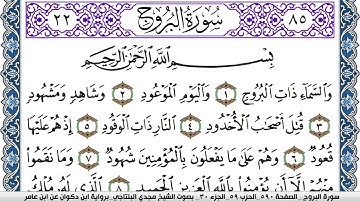 ٨٥ سُورَةُ البُرُوجِ ٢٢
بِسْمِ اللَّهِ الرَّحْمَٰنِ الرَّحِيمِ
وَالسَّمَآءِ ذَاتِ الْبُرُوجِ ١ وَالْيَوْمِ الْمَوْعُودِ ٢ وَشَاهِدٍ وَمَشْهُودٍ
٣ قُتِلَ أَصْحَٰبُ الْأُخْدُودِ ٤ النَّارِ ذَاتِ الْوَقُودِ ٥ إِذْ هُمْ عَلَيْهَا
قُعُودٌ ٦ وَهُمْ عَلَىٰ مَا يَفْعَلُونَ بِالْمُؤْمِنِينَ شُهُودٌ ٧ وَمَا نَقَمُوا
مِنْهُمْ إِلَّآ أَن يُؤْمِنُوا بِاللَّهِ الْعَزِيزِ الْحَمِيدِ ٨ الَّذِي لَهُ مُلْكُ
سورة البروج . الصفحة ٥٩٠ . الحزب ٥٩ . الجزء ٣٠ . بصوت الشيخ مجدي البلتاجي . برواية ابن ذكوان عن ابن عامر